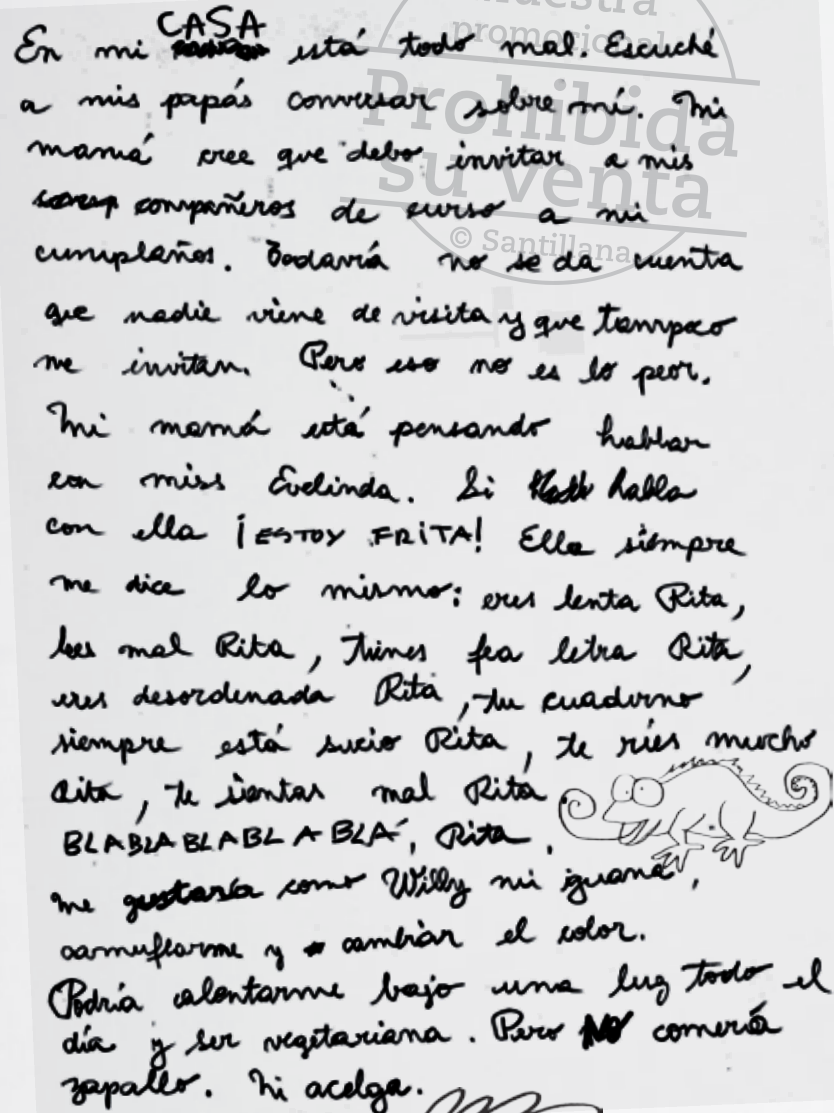 muestra
promocional
Prohibida
su venta
© Santillana
CASA
En mi está todo mal. Escuché
a mis papás conversar sobre mí. Mi
mamá cree que debo invitar a mis
compañeros de curso a mi
cumplaños. Todavía no se da cuenta
que nadie viene de visita y que tampoco
me invitan. Pero eso no es lo peor.
Mi mamá está pensando hablar
con miss Evelinda. Si habla
con ella ¡ESTOY FRITA! Ella siempre
me dice lo mismo: eres lenta Rita,
lees mal Rita, tienes fea letra Rita,
eres desordenada Rita, tu cuaderno
siempre está sucio Rita, te ríes mucho
Rita, te sientas mal Rita
BLABLABLABLABLÁ, Rita.
Me gustaría como Willy mi iguana,
camuflarme y cambiar el color.
Podría calentarme bajo una luz todo el
día y ser vegetariana. Pero NO comería
zapallo. Ni acelga.